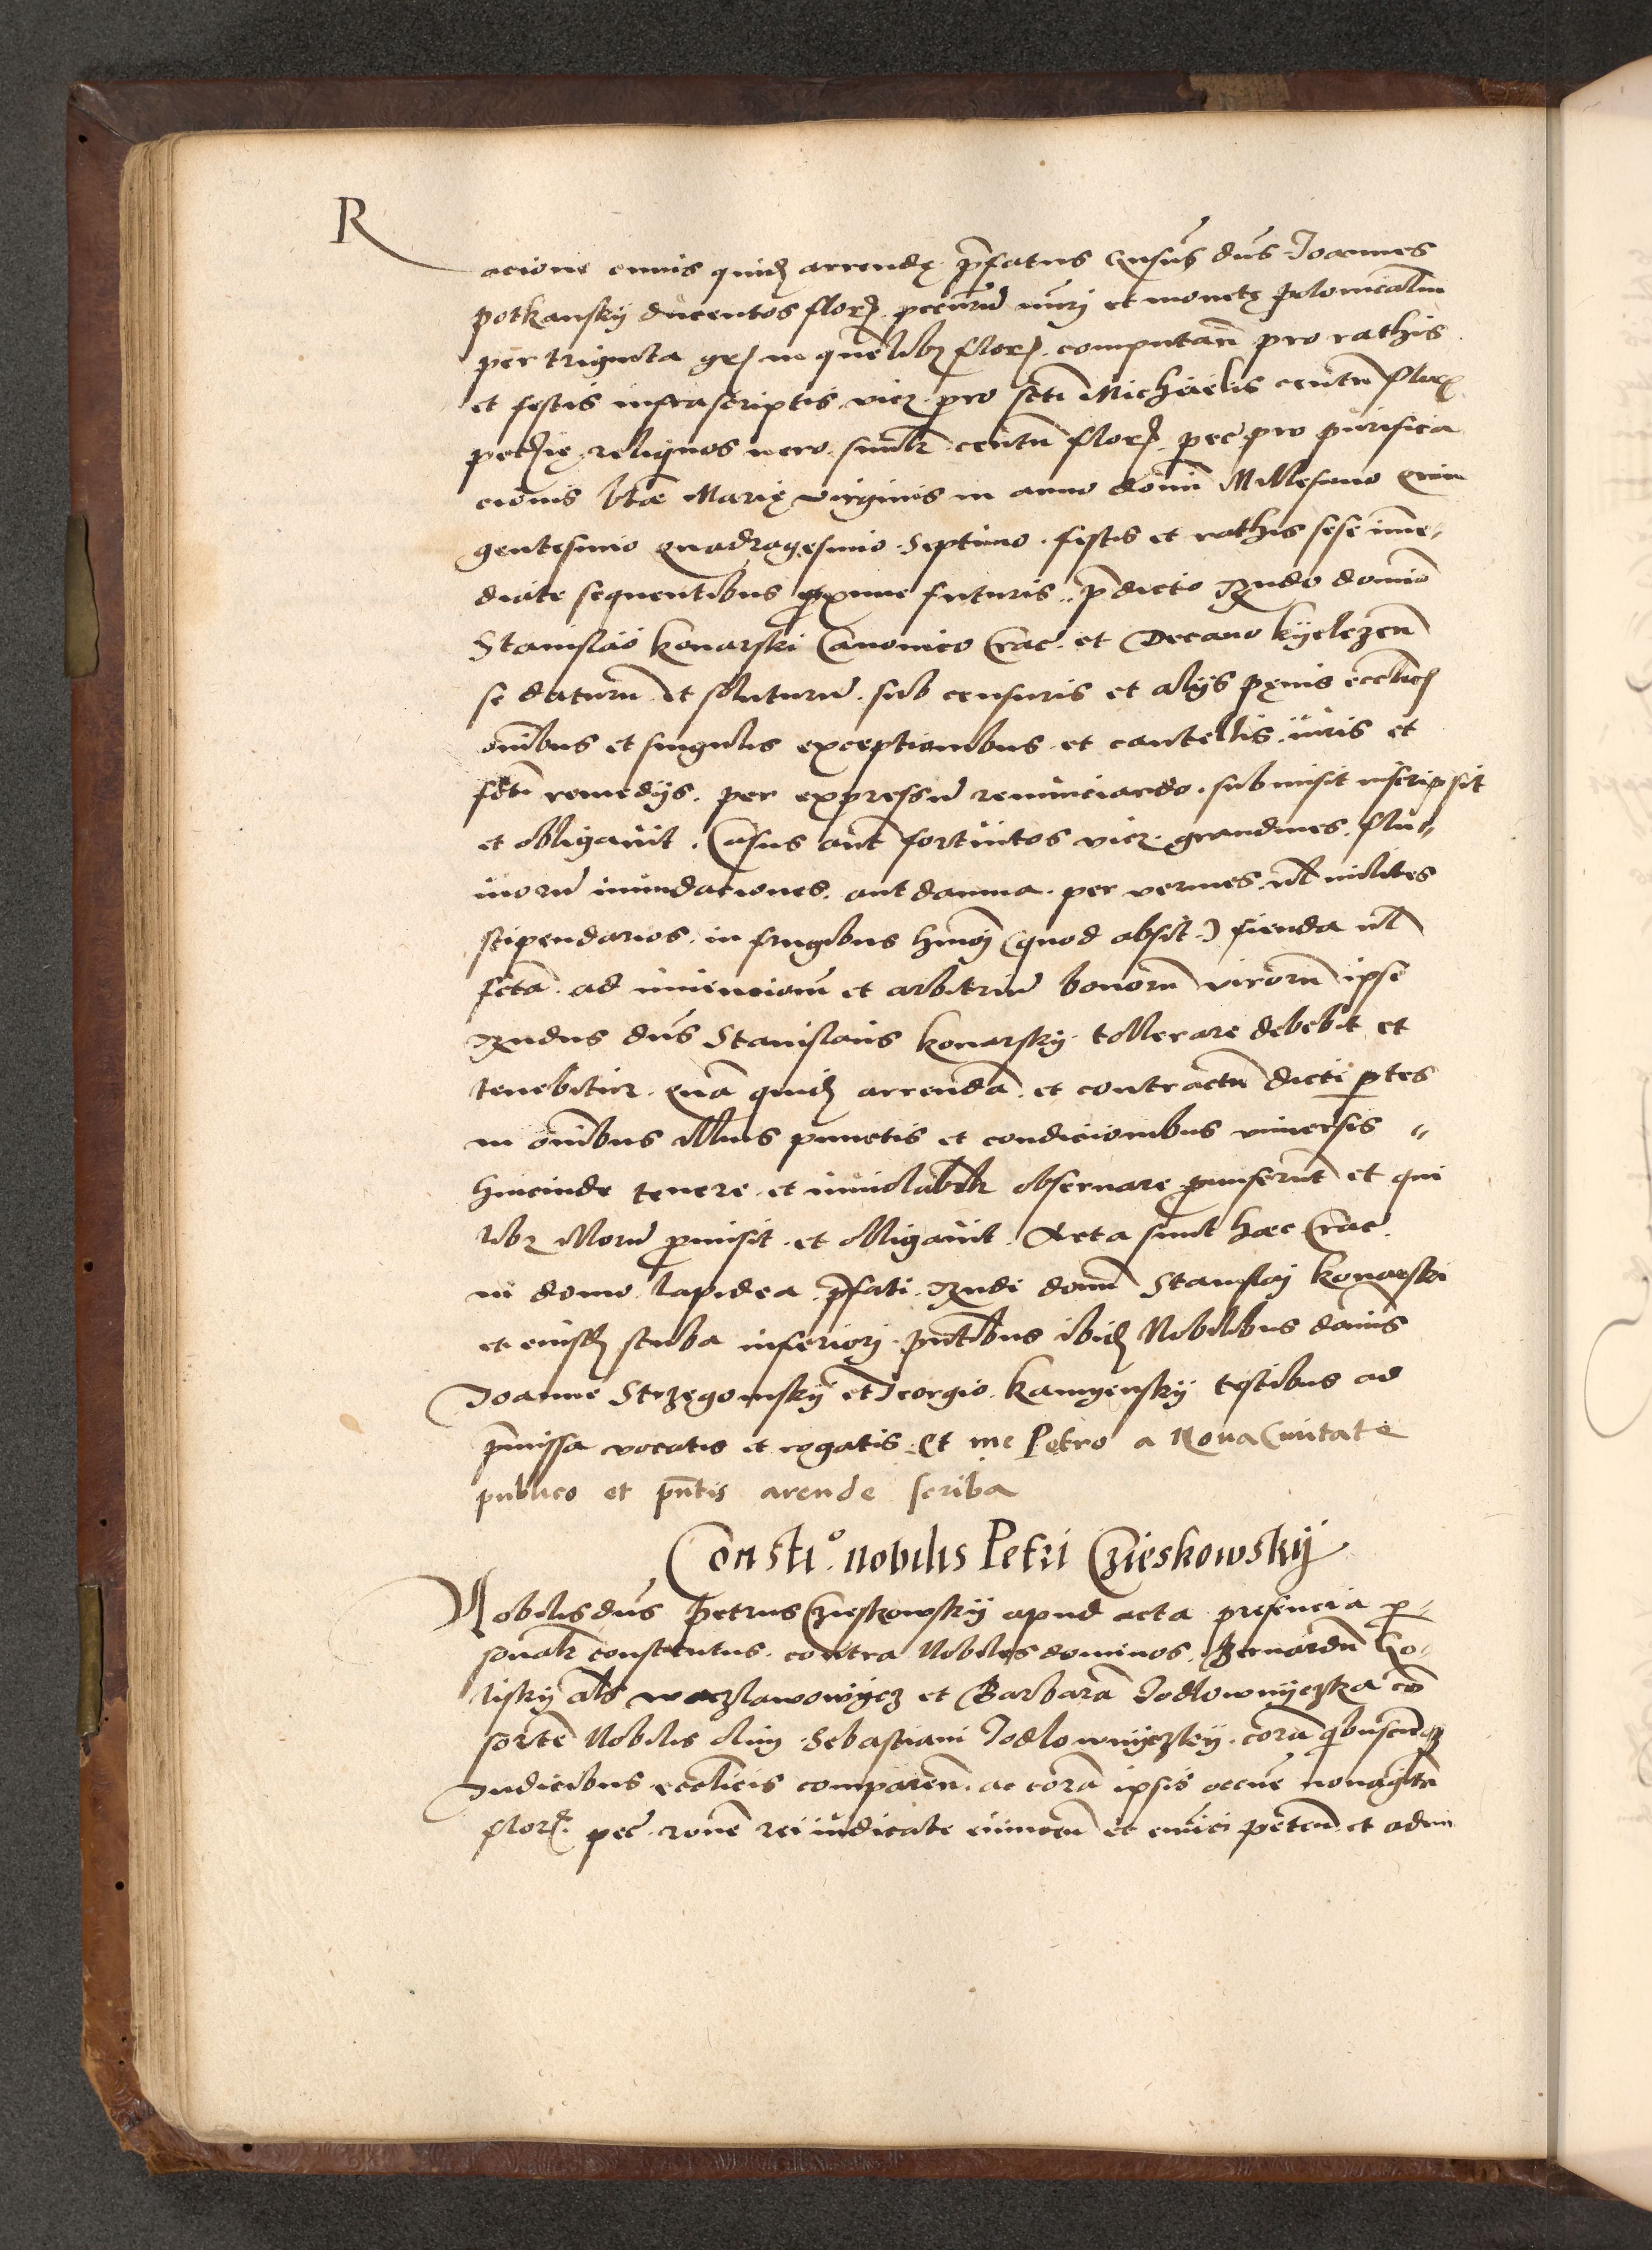 Racione cuius quid(em) arrendę p̄fatus Gn̄sus dn̄s Joannes
potkansky ducentos floř pecc̄uniar̄ numeri et monetę polonicaliu(m)
per triginta gr̄ in quēlibz florz. computan̄ pro rathis
et festis infrascriptis, vicz. pro scti Michaelis centū florz
reliquos vero, simlr centū florz. pec̄ pro purifica
cionis bt̄ae Marię virginis in anno domī Millesimo Quin
gentesimo Quadragesimo Septimo. festis et rathis sese īme-
diate sequentibus proxime futuris. p̄dicto Rndo domino
Stanislao konarski Canonico Crac̄. et Decano kyelczen̄
se daturū et soluturū. sub censuris et alijs pęnis eccl̄icis
oīnibus et singulis exceptionibus et cautellis iuris et
fcti remedijs. per expressū renunciando. submisit inscripsit
et obligavit. Casus aūt fortuitos vicz. grandines. fluc-
uiorū inundaciones. aut damna. per vermes, vl̄ milites
stipendarios, in frugibus hmōi (quod absit) fienda vl̄
fcta. ad inuencionem et arbitriū bonorū virorū ipse
Rndus dn̄s Stanislaus konarsky. tollerare debebit et
tenebitur. Quā quid(em) arrendā. et contractū dicti ptes
in oīnibus illius punctis et condicionibus vniuersis
hincinde tenere et inviolabilr obseruare promiserūt et qui
libz illorū promisit et obligavit. Acta sunt haec Crac̄
in domo lapidea. p̄fati Rndi domī Stanislaj konarski
et eiusd(em) stuba inferiorj. pn̄tibus ibid(em) Nobilibus dominis
Joanne Strzegowsky et Georgio kamyensky testibus ad
p̄missa vocatis et rogatis. Et me Petro a Noua Ciuitate
publico et pn̄tis arende scriba
Constio. nobilis Petri Czieskowskÿ
Nobilis dn̄s Petrus Czieskowskÿ apud acta presencia per-
sonalr constitutus. contra Nobiles dominos. Bernardū
als waczlawowycz et Barbarā Jodlownyczka cō
sortē Nobilis olim Sebastiani Jodlownyczky. corā qibuscūqz
Judicibus eccl̄icis comparen̄. ac corā ipsis nonagīta
florz. pec̄ ronē rei iudicate et petend̄ et adm